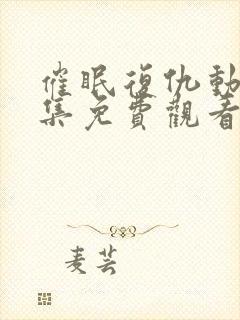 催眠復仇動
集免費觀看
麦芸